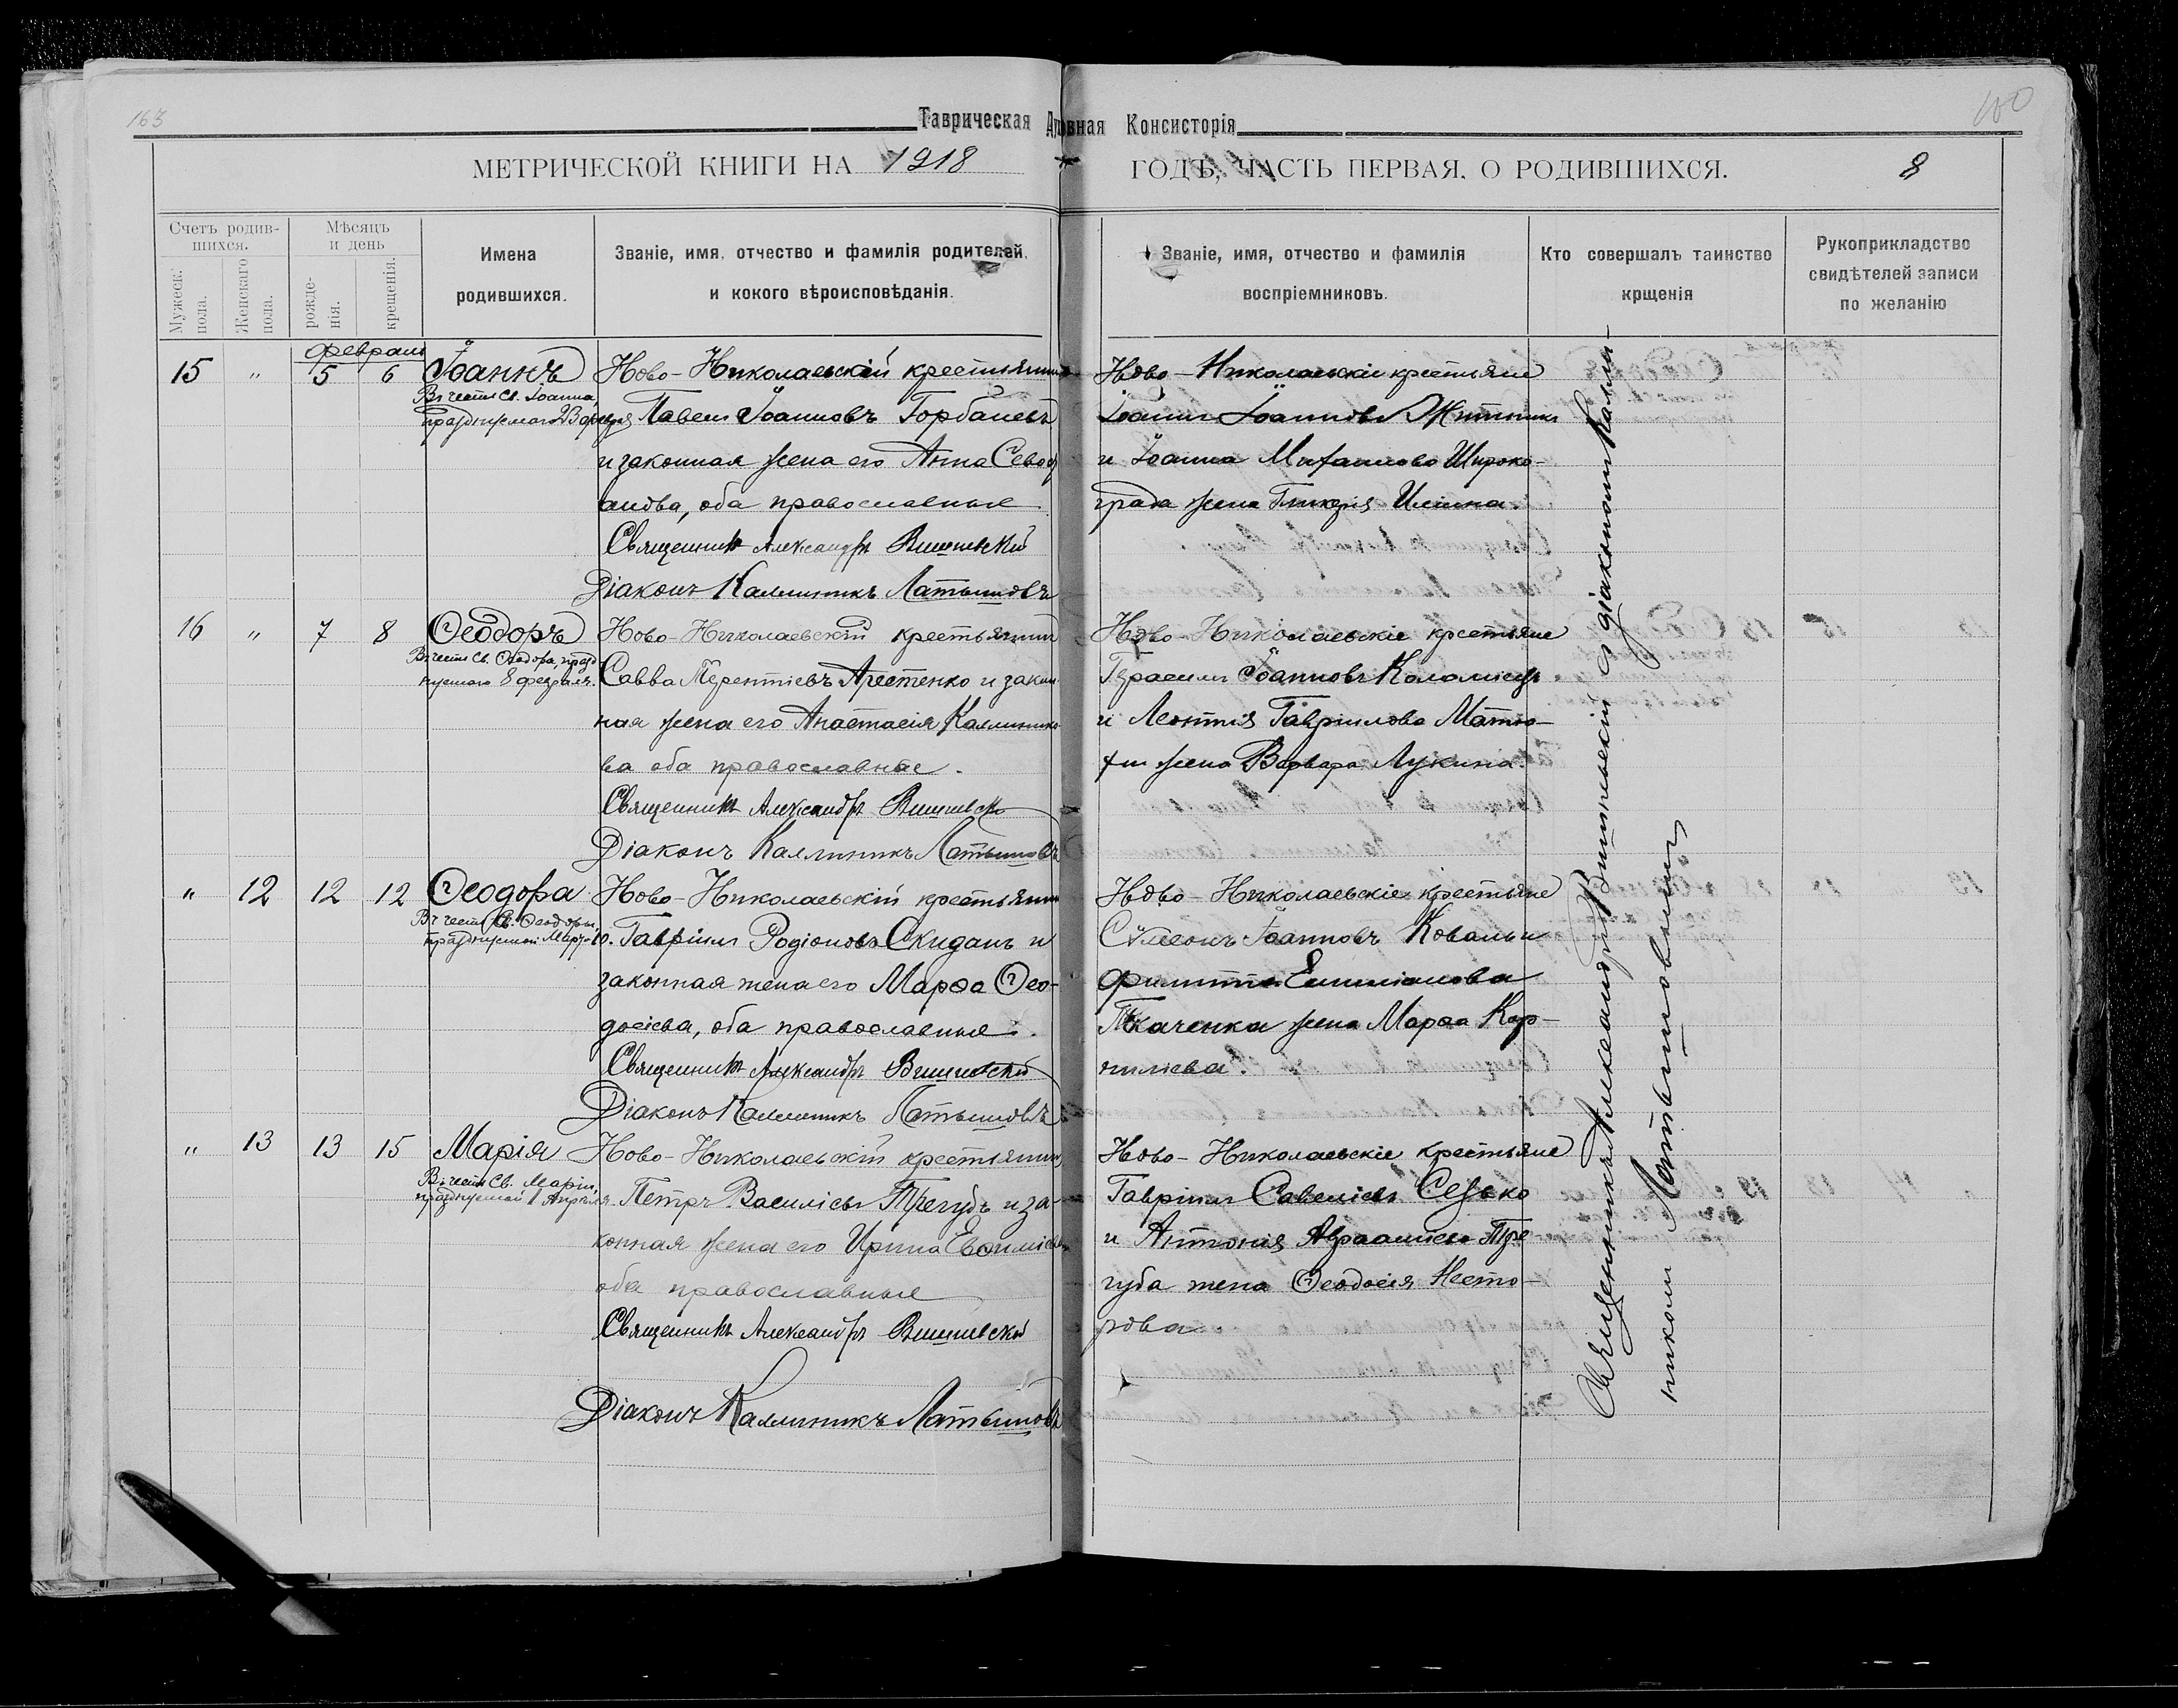 163
Таврическая Духовная Консисторія
100
МЕТРИЧЕСКОЙ КНИГИ НА 1918 ГОДЪ, ЧАСТЬ ПЕРВАЯ, О РОДИВШИХСЯ.
8
Счетъ родив-
шихся.
Мужеск. пола.
Женскаго пола.
Мѣсяцъ
и день
рожде-
нія.
крещенія.
Имена
родившихся.
Званіе, имя, отчество и фамилія родителей,
и кокого вѣроисповѣданія.
Званіе, имя, отчество и фамилія
воспріемниковъ.
Кто совершалъ таинство
крщенія
Рукоприкладство
свидѣтелей записи
по желанію
февраль
15 " 5 6 Іоаннъ
Въ честь Св. Іоанна,
празднуемаго
Ново-Николаевскій крестьянинъ
Павелъ Іоанновъ Горбачевъ
и законная жена его Анна
оба православные
Священникъ Александръ Вишневскій
Діаконъ Каллиникъ Латышовъ
Ново-Николаевскіе крестьяне
Іоаннъ Іоанновъ Житникъ
и Іоанна Михаилова Широко-
града жена Гликерія Ильина.
16 " 7 8 Ѳеодоръ
Въ честь Св. Ѳеодора, празд-
нуемаго 8 февраля.
Ново-Николаевскій крестьянинъ
Савва Терентіевъ Арестенко и закон-
ная жена его Анастасія Каллинико-
ва оба православные.
Священникъ Александръ Вишневскій
Діаконъ Каллиникъ Латышовъ
Ново-Николаевскіе крестьяне
Герасимъ Іоанновъ Коломіецъ
и Леонтія Гавріилова Матю-
хи жена Варвара Лукина.
" 12 12 12 Ѳеодора
Въ честь Св. Ѳеодоры,
празднуемой Марта 10.
Ново-Николаевскій крестьянинъ
Гавріилъ Родіоновъ Скиданъ и
законная жена его Марѳа Ѳео-
досіева, оба православные.
Священникъ Александръ Вишневскій
Діаконъ Каллиникъ Латышовъ
Ново-Николаевскіе крестьяне
Сѵмеонъ Іоанновъ Коваль и
Филиппа Емиліанова
Ткаченка жена Марѳа Кор-
ниліева.
" 13 13 15 Марія
Въ честь Св. Маріи,
празднуемой 1 Апрѣля.
Ново-Николаевскій крестьянинъ
Петръ Василіевъ Трегубъ и за-
конная жена его Ирина Евѳиміева
оба православные
Священникъ Александръ Вишневскій
Діаконъ Каллиникъ Латышовъ
Ново-Николаевскіе крестьяне
Гавріилъ Савеліевъ Сезько
и Антонія Авраамiева Тре-
губа жена Ѳеодосія Несто-
рова.
Священникъ Александръ Вишневскій съ діакономъ Калли-
никомъ Латышовымъ